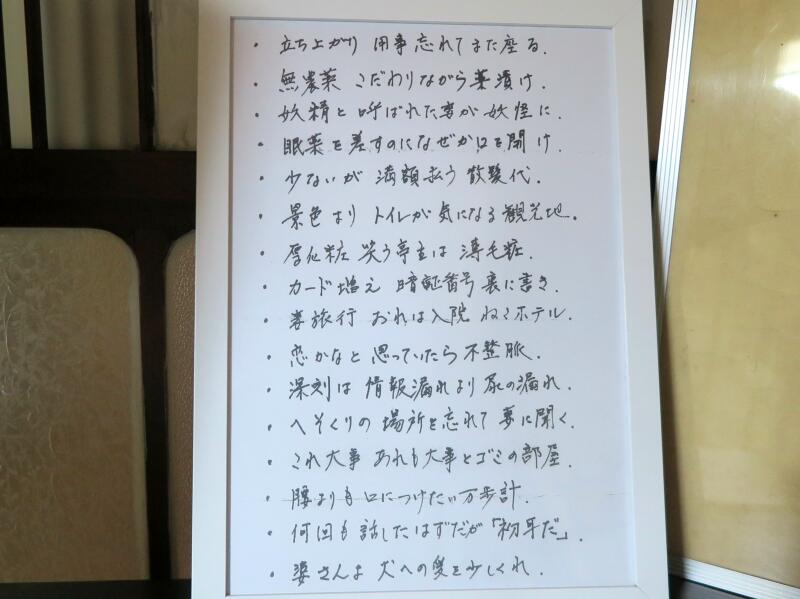 ・立ち上がり 用事忘れてまた座る.
・無農薬 こだわりながら薬漬け.
・妖精と 呼ばれた妻が 妖怪に.
・眠薬を差すのになぜか口を開け.
・少ないが 満額払う 散髪代.
・景色より トイレが気になる観光地.
・厚化粧 笑う亭主は 薄毛粧.
・カード増え 暗証番号 裏に書き.
・妻旅行 おれは入院 ねこホテル.
・恋かなと 思っていたら不整脈.
・深刻は 情報漏れより 尿の漏れ.
・へそくりの 場所を忘れて 妻に聞く.
・これ大事 あれも大事とゴミの部屋.
・腰よりも 口につけたい万歩計.
・何回も 話したはずだが「初耳だ」.
・婆さんよ 犬への愛を少しくれ.